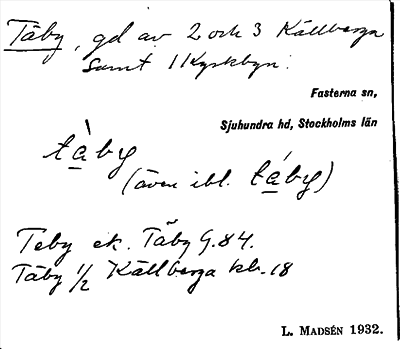 Täby, gd av 2 och 3 Källberga
samt 1 Kyrkbyn.
Fasterna sn,
Sjuhundra hd, Stockholms län
tàby
(även ibl. táby)
Teby ek. Täby G. 84.
Täby 1/2 Källberga kb. 18
L. MADSÉN 1932.